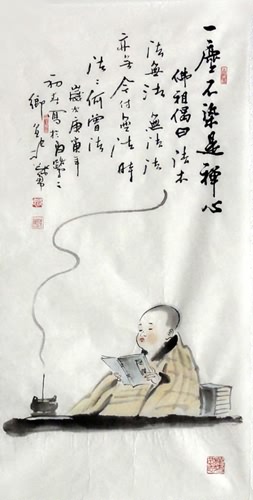 一塵不染是禪心
佛祖偈曰法本
法無法無法法
亦無今付無法時
法々何曾法
歲次庚寅年
初春寫於